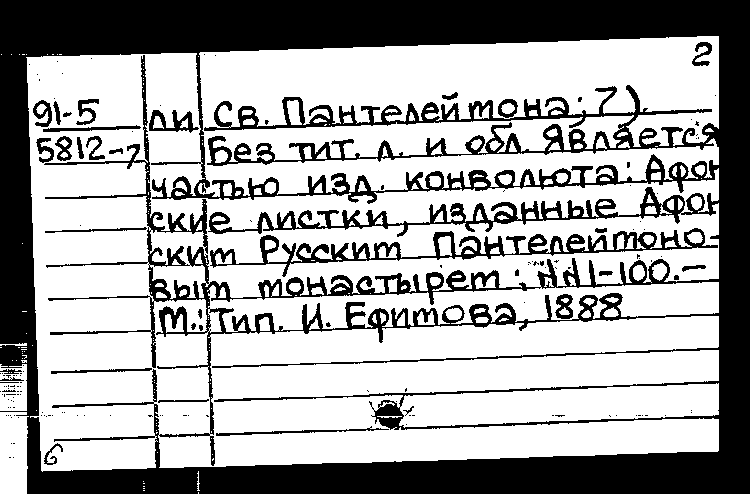 2
91-5 ли Св. Пантелеймона; 7).
5812-7 Без тит. л. и обл. Является
частью изд. конволюта: Афон
ские листки, изданные Афон
ским Русским Пантелеймоно-
вым монастырем: №№1-100.-
М.: Тип. И. Ефимова, 1888.
6